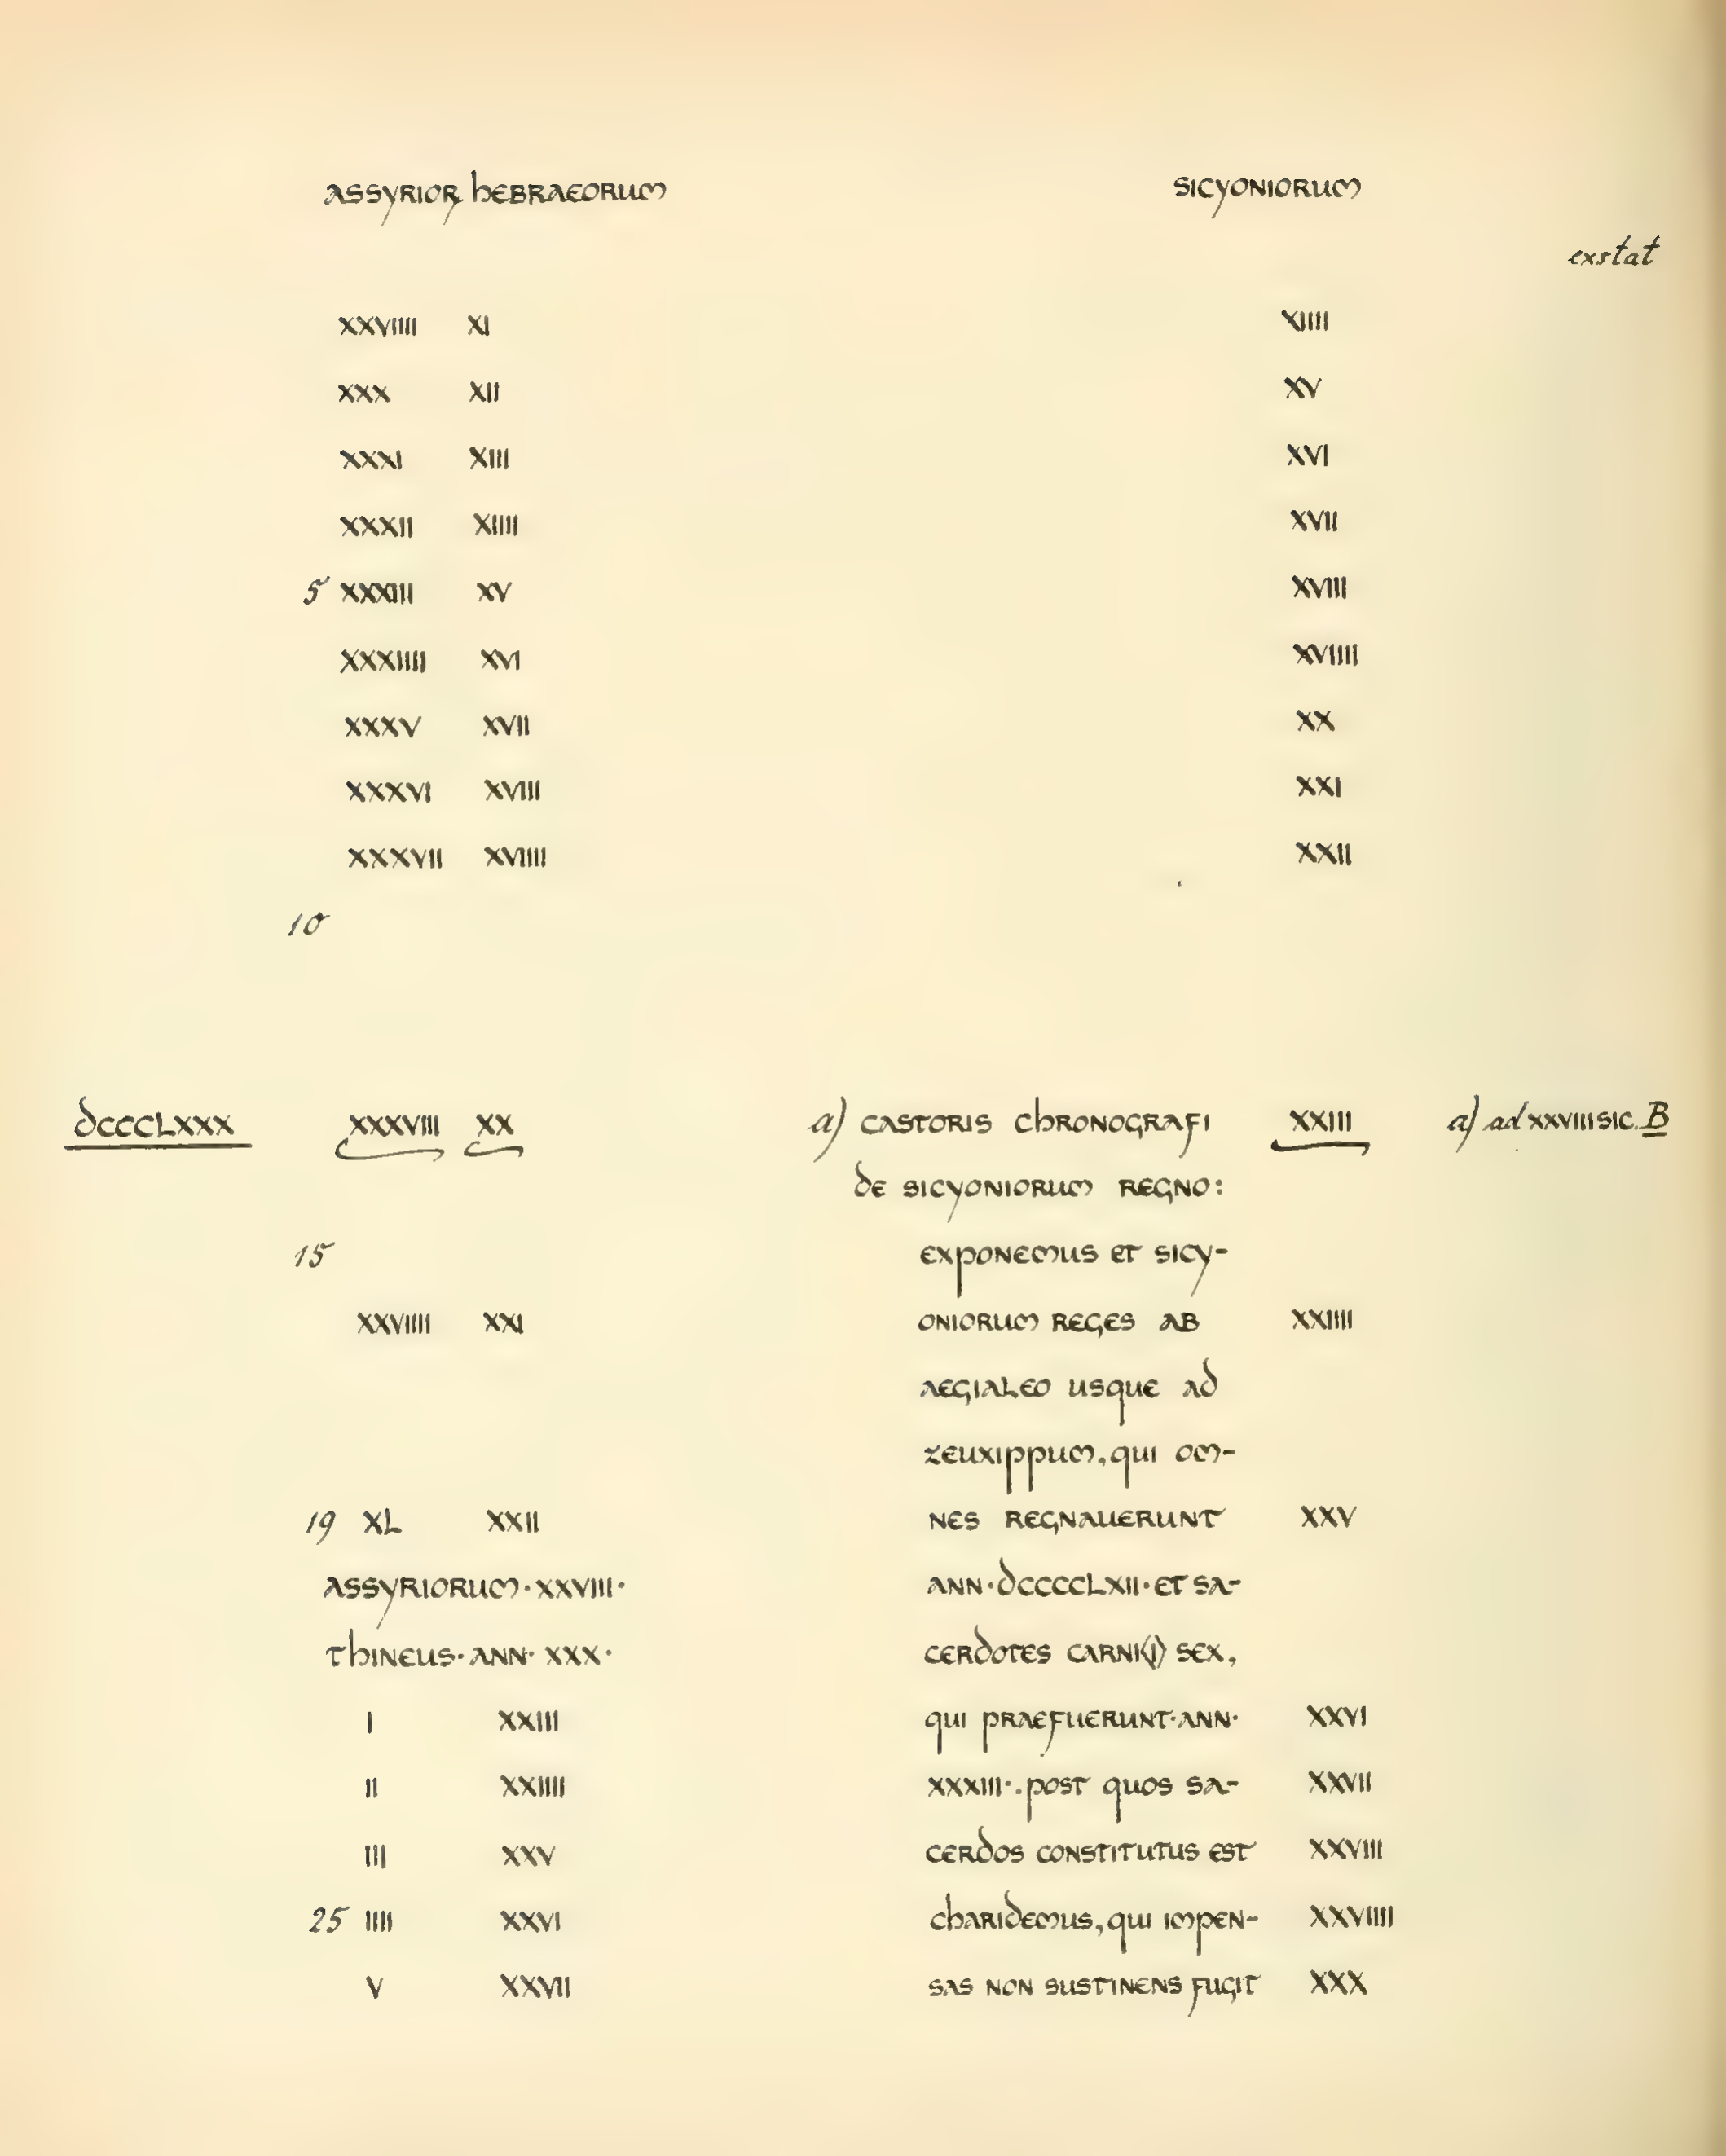 ASSYRIOR HEBRAEORUM SICYONIORUM
exstat
XXVIIII XI XIIII
XXX XII XV
XXXI XIII XVI
XXXII XIIII XVII
5 XXXIII XV XVIII
XXXIIII XVI XVIIII
XXXV XVII XX
XXXVI XVIII XXI
XXXVII XVIIII XXII
10
DCCCLXXX XXXVIII XX a) CASTORIS CHRONOGRAFI XXIII a) ad XXVIIII SIC. B
DE SICYONIORUM REGNO:
15 EXPONEMUS ET SICY-
XXVIIII XXI ONIORUM REGES AB XXIIII
AEGIALEO USQUE AD
ZEUXIPPUM, QUI OM-
19 XL XXII NES REGNAUERUNT XXV
ASSYRIORUM·XXVIII· ANN·DCCCCLXII·ET SA-
THINEUS·ANN·XXX· CERDOTES CARNI⟨I⟩ SEX,
I XXIII QUI PRAEFUERUNT·ANN· XXVI
II XXIIII XXXIII·.POST QUOS SA- XXVII
III XXV CERDOS CONSTITUTUS EST XXVIII
25 IIII XXVI CHARIDEMUS, QUI IMPEN- XXVIIII
V XXVII SAS NON SUSTINENS FUGIT XXX